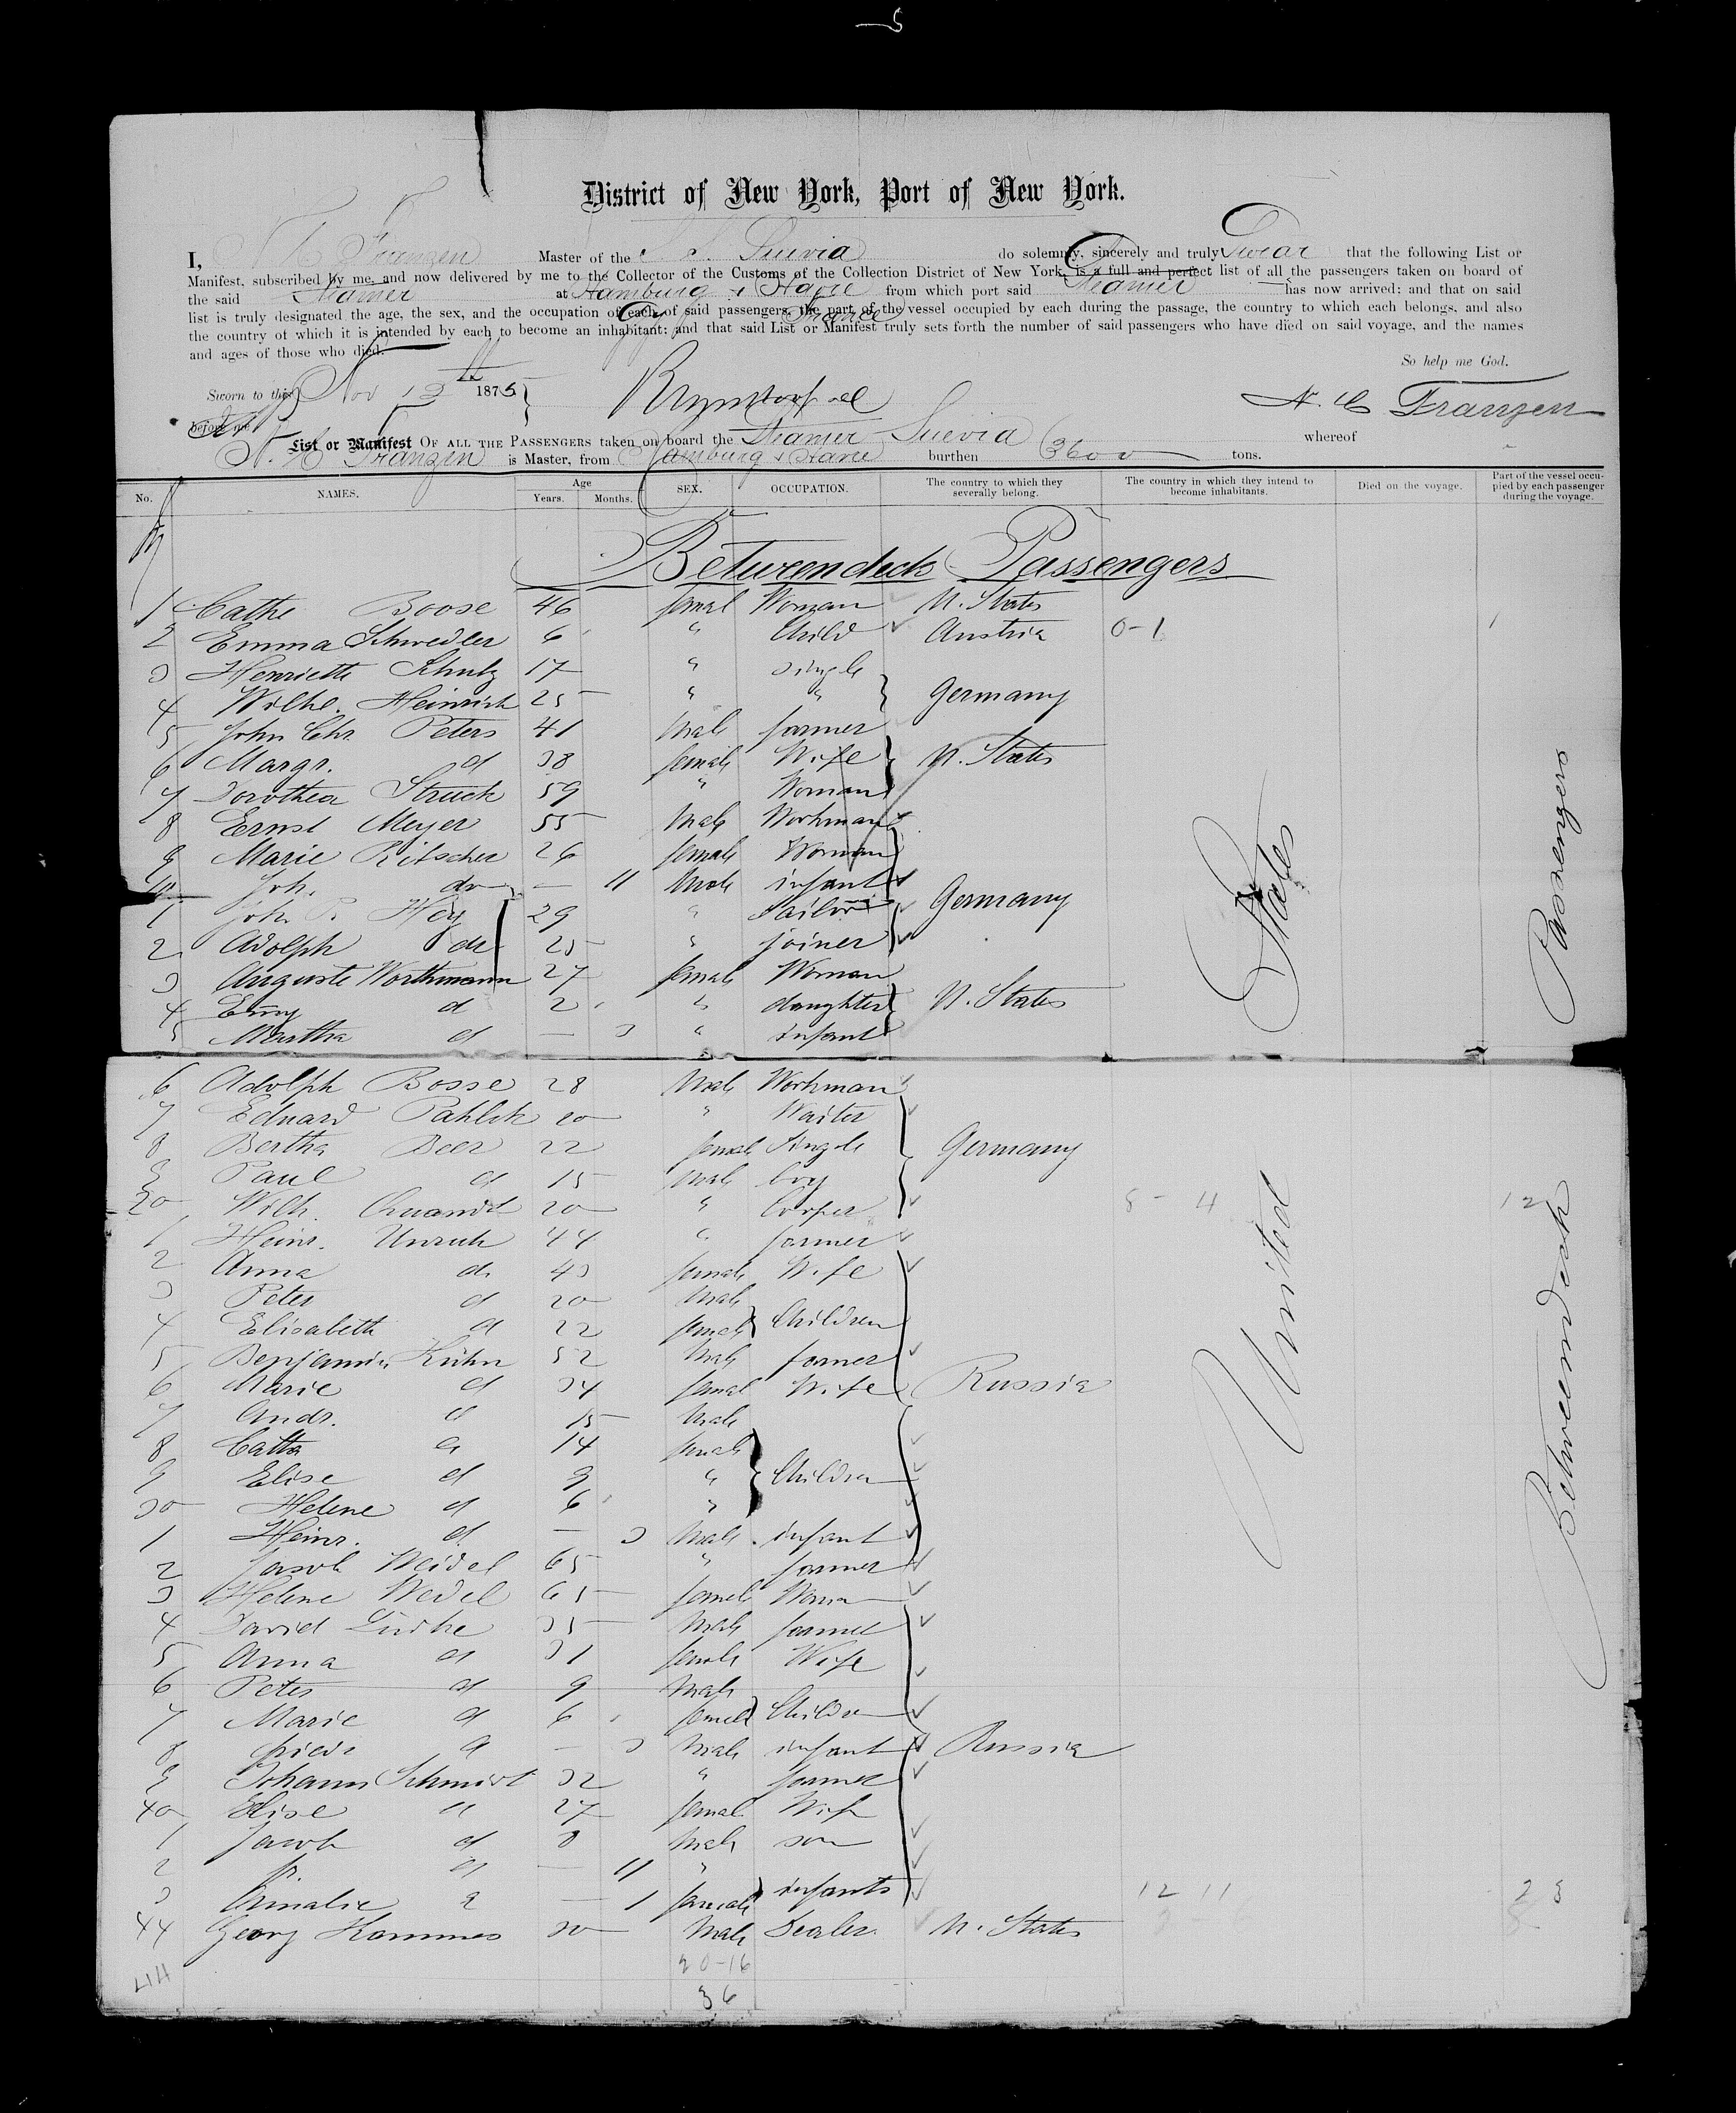 5
District of New York, Port of New York.
I, N. C. Franzen Master of the S. S. Suevia do solemnly, sincerely and truly Swear that the following List or
Manifest, subscribed by me, and now delivered by me to the Collector of the Customs of the Collection District of New York, is a full and perfect list of all the passengers taken on board of
the said Steamer at Hamburg & Havre from which port said Steamer has now arrived: and that on said
list is truly designated the age, the sex, and the occupation of each of said passengers, the part of the vessel occupied by each during the passage, the country to which each belongs, and also
France
the country of which it is intended by each to become an inhabitant; and that said List or Manifest truly sets forth the number of said passengers who have died on said voyage, and the names
and ages of those who died.
So help me God.
Sworn to this Nov 12th 1875
before me
N. C. Franzen
List or Manifest OF ALL THE PASSENGERS taken on board the Steamer Suevia whereof
N. C. Franzen is Master, from Hamburg & Havre burthen 3600 tons.
No. NAMES. Age Years. Months. SEX. OCCUPATION. The country to which they severally belong. The country in which they intend to become inhabitants. Died on the voyage. Part of the vessel occupied by each passenger during the voyage.
Betweendeck Passengers
1 Cathe Boose 46 femal Woman U. States
2 Emma Schwedler 6 " Child Austria 0-1 1
3 Henriette Schulz 17 " single
4 Wilhe. Heinrich 25 " " Germany
5 John Chr. Peters 41 Male farmer
6 Margr. d 38 female Wife U. States
7 Dorothea Struck 59 " Woman
8 Ernst Meyer 55 Male Workman
9 Marie Ritscher 26 female Woman
10 Joh. do — 11 Male infant Germany
1 Joh. P. Hoy 29 " Sailor
2 Adolph do 25 " joiner
3 Auguste Worthmann 27 female Woman
4 Emy d 2 " daughter U. States
5 Martha d — 3 " infant
6 Adolph Bosse 28 Male Workman
7 Eduard Pahlck 20 " Waiter
8 Bertha Beer 22 female Single Germany
9 Paul d 15 Male boy
20 Wilh. 20 " Cooper 8-4 12
1 Heinr. Unruh 44 " farmer
2 Anna d. 43 female Wife
3 Peter d 20 Male
4 Elisabeth d 22 female Children
5 Benjamin Kühn 52 Male farmer
6 Marie d 34 femal Wife Russia
7 Andr. d 15 Male
8 Catha d 14 female
9 Elise d 9 " Children
30 Helene d 6 "
1 Heinr. d. — 3 Male infant
2 Jacob Weidel 65 " farmer
3 Helene Wedel 65 female Woman
4 David Lüdke 35 Male farmer
5 Anna d 31 female Wife
6 Peter d 9 Male
7 Marie d 6 female Children
8 d — 3 Male infant Russia
9 Johann Schmidt 32 " farmer
40 Elise d 27 femal Wife
1 Jacob d 8 Male son
2 d — 11 "
3 Amalie d — 1 female infants 12 11 23
44 Georg Hammes 30 Male Dealer U. States
20-16
36
United States
Betweendeck Passengers